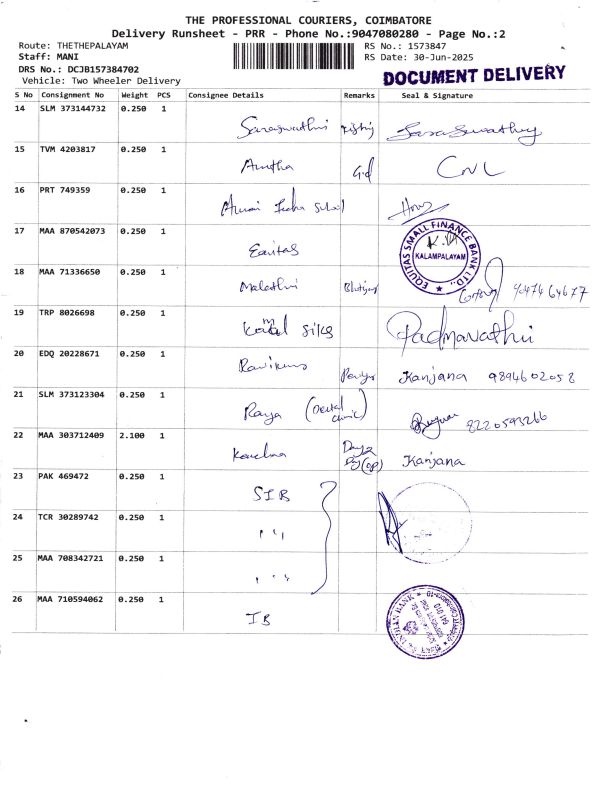 THE PROFESSIONAL COURIERS, COIMBATORE
Delivery Runsheet - PRR - Phone No.:9047080280 - Page No.:2
Route: THETHEPALAYAM
RS No.: 1573847
Staff: MANI
RS Date: 30-Jun-2025
DRS No.: DCJB157384702
Vehicle: Two Wheeler Delivery
DOCUMENT DELIVERY
S No Consignment No Weight PCS Consignee Details Remarks Seal & Signature
14 SLM 373144732 0.250 1
Saraswathi
15 TVM 4203817 0.250 1
CNL
16 PRT 749359 0.250 1
17 MAA 870542073 0.250 1
Equitas
EQUITAS SMALL FINANCE BANK LTD.,
KALAMPALAYAM
18 MAA 71336650 0.250 1
Malathi
19 TRP 8026698 0.250 1
Silks Padmavathi
20 EDQ 20228671 0.250 1
Kanjana 9894602058
21 SLM 373123304 0.250 1
Raya (Dental clinic) 8220593266
22 MAA 303712409 2.100 1
Kanjana
23 PAK 469472 0.250 1
SIB
24 TCR 30289742 0.250 1
25 MAA 708342721 0.250 1
26 MAA 710594062 0.250 1
IB
INDIAN BANK